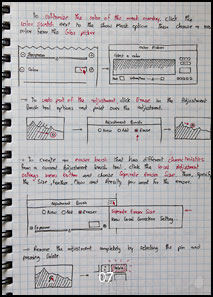 To customize the color of the mask overlay, click the
color swatch next to the Show Mask option. Then choose a new
color from the Color Picker
Color
Color Picker
Select a color
→ To undo part of the adjustment, click Eraser in the Adjustment
Brush tool options and paint over the adjustment.
Adjustment Brush
New Add Erase
→ To create an eraser brush that has different characteristics
from a normal Adjustment brush tool, click the Local Adjustment
Settings menu button and choose Separate Eraser Size. Then, specify
the Size, Feather, Flow and Density you want for the eraser.
Adjustment Brush
New Add Erase
Separate Eraser Size
→ Remove the adjustment completely by selecting the pin and
pressing Delete.
07